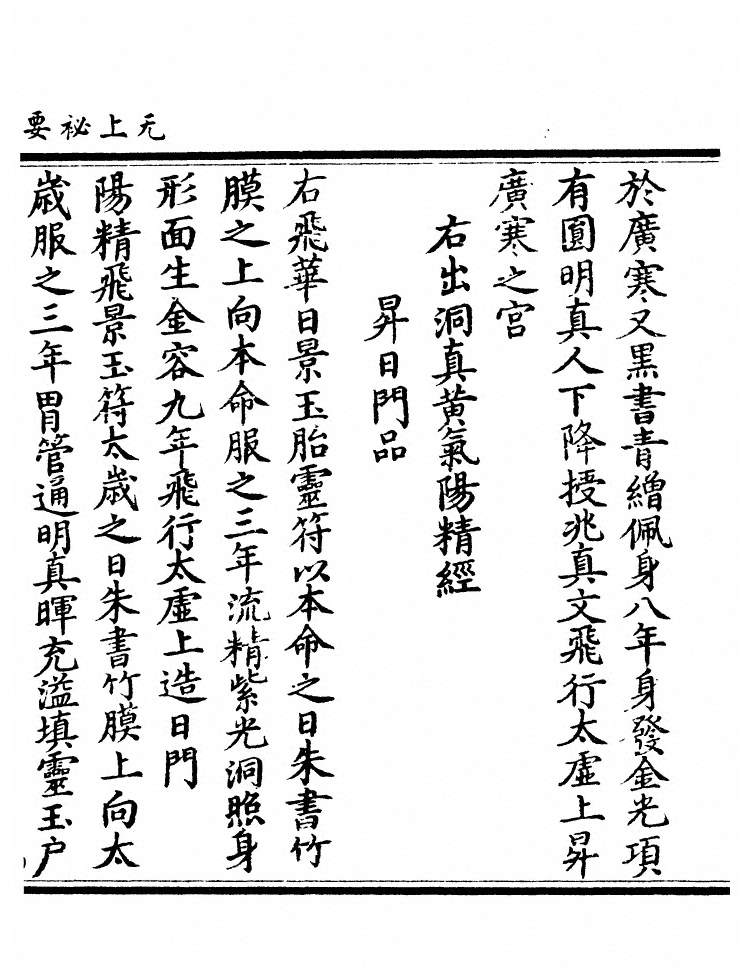 无上祕要
於廣寒又黒書青繒佩身八年身發金光項
有圓明真人下降授兆真文飛行太虛上昇
廣寒之宮
右出洞真黄氣陽精經
昇日門品
右飛華日景玉胎靈符以本命之日朱書竹
膜之上向本命服之三年流精紫光洞照身
形面生金容九年飛行太虛上造日門
陽精飛景玉符太歲之日朱書竹膜上向太
歲服之三年胃管通明真暉充溢填靈玉户